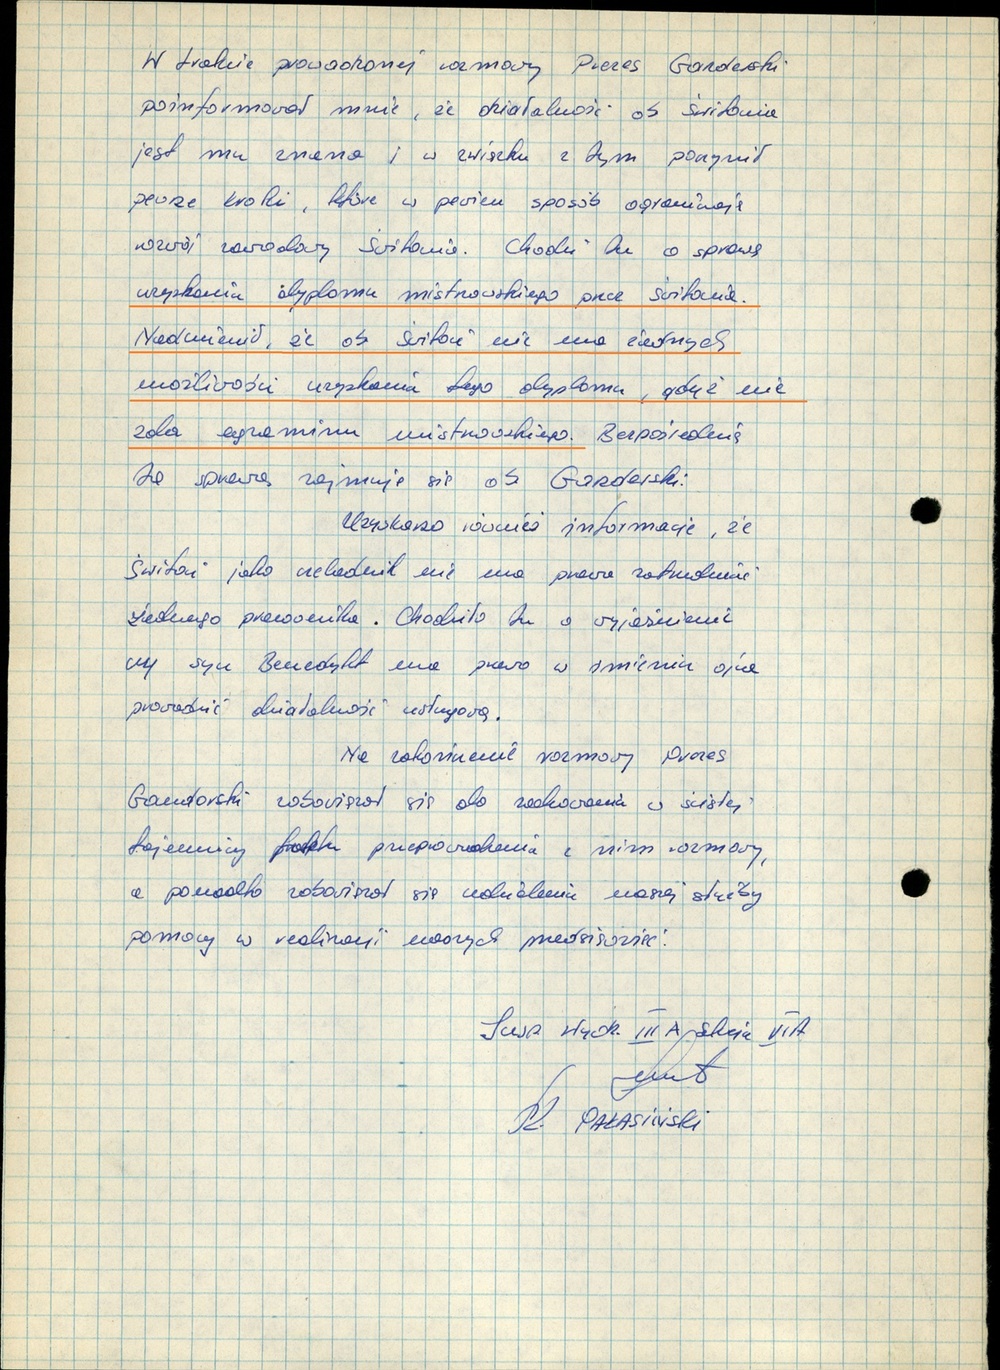 W trakcie prowadzonej rozmowy Prezes Ganderski
poinformował mnie, że działalność ob Świtonia
jest mu znana i w związku z tym poczynił
pewne kroki, które w pewien sposób ograniczają
rozwój zawodowy Świtonia. Chodzi tu o sprawę
uzyskania dyplomu mistrzowskiego przez Świtonia.
Nadmienił, że ob Świtoń nie ma żadnych
możliwości uzyskania tego dyplomu, gdyż nie
zda egzaminu mistrzowskiego. Bezpośrednią
tą sprawą zajmuje się ob Ganderski.
Uzyskano również informację, że
Świtoń jako rzemieślnik nie ma prawa zatrudnić
żadnego pracownika. Chodziło tu o wyjaśnienie
czy syn Benedykt ma prawo w imieniu ojca
prowadzić działalność usługową.
Na zakończenie rozmowy Prezes
Gandorski zobowiązał się do zachowania w ścisłej
tajemnicy faktu przeprowadzenia z nim rozmowy,
a ponadto zobowiązał się udzielenia naszej służby
pomocy w realizacji naszych przedsięwzięć.
Insp. Wydz. III A Sekcja VI A
K. PAŁASIŃSKI